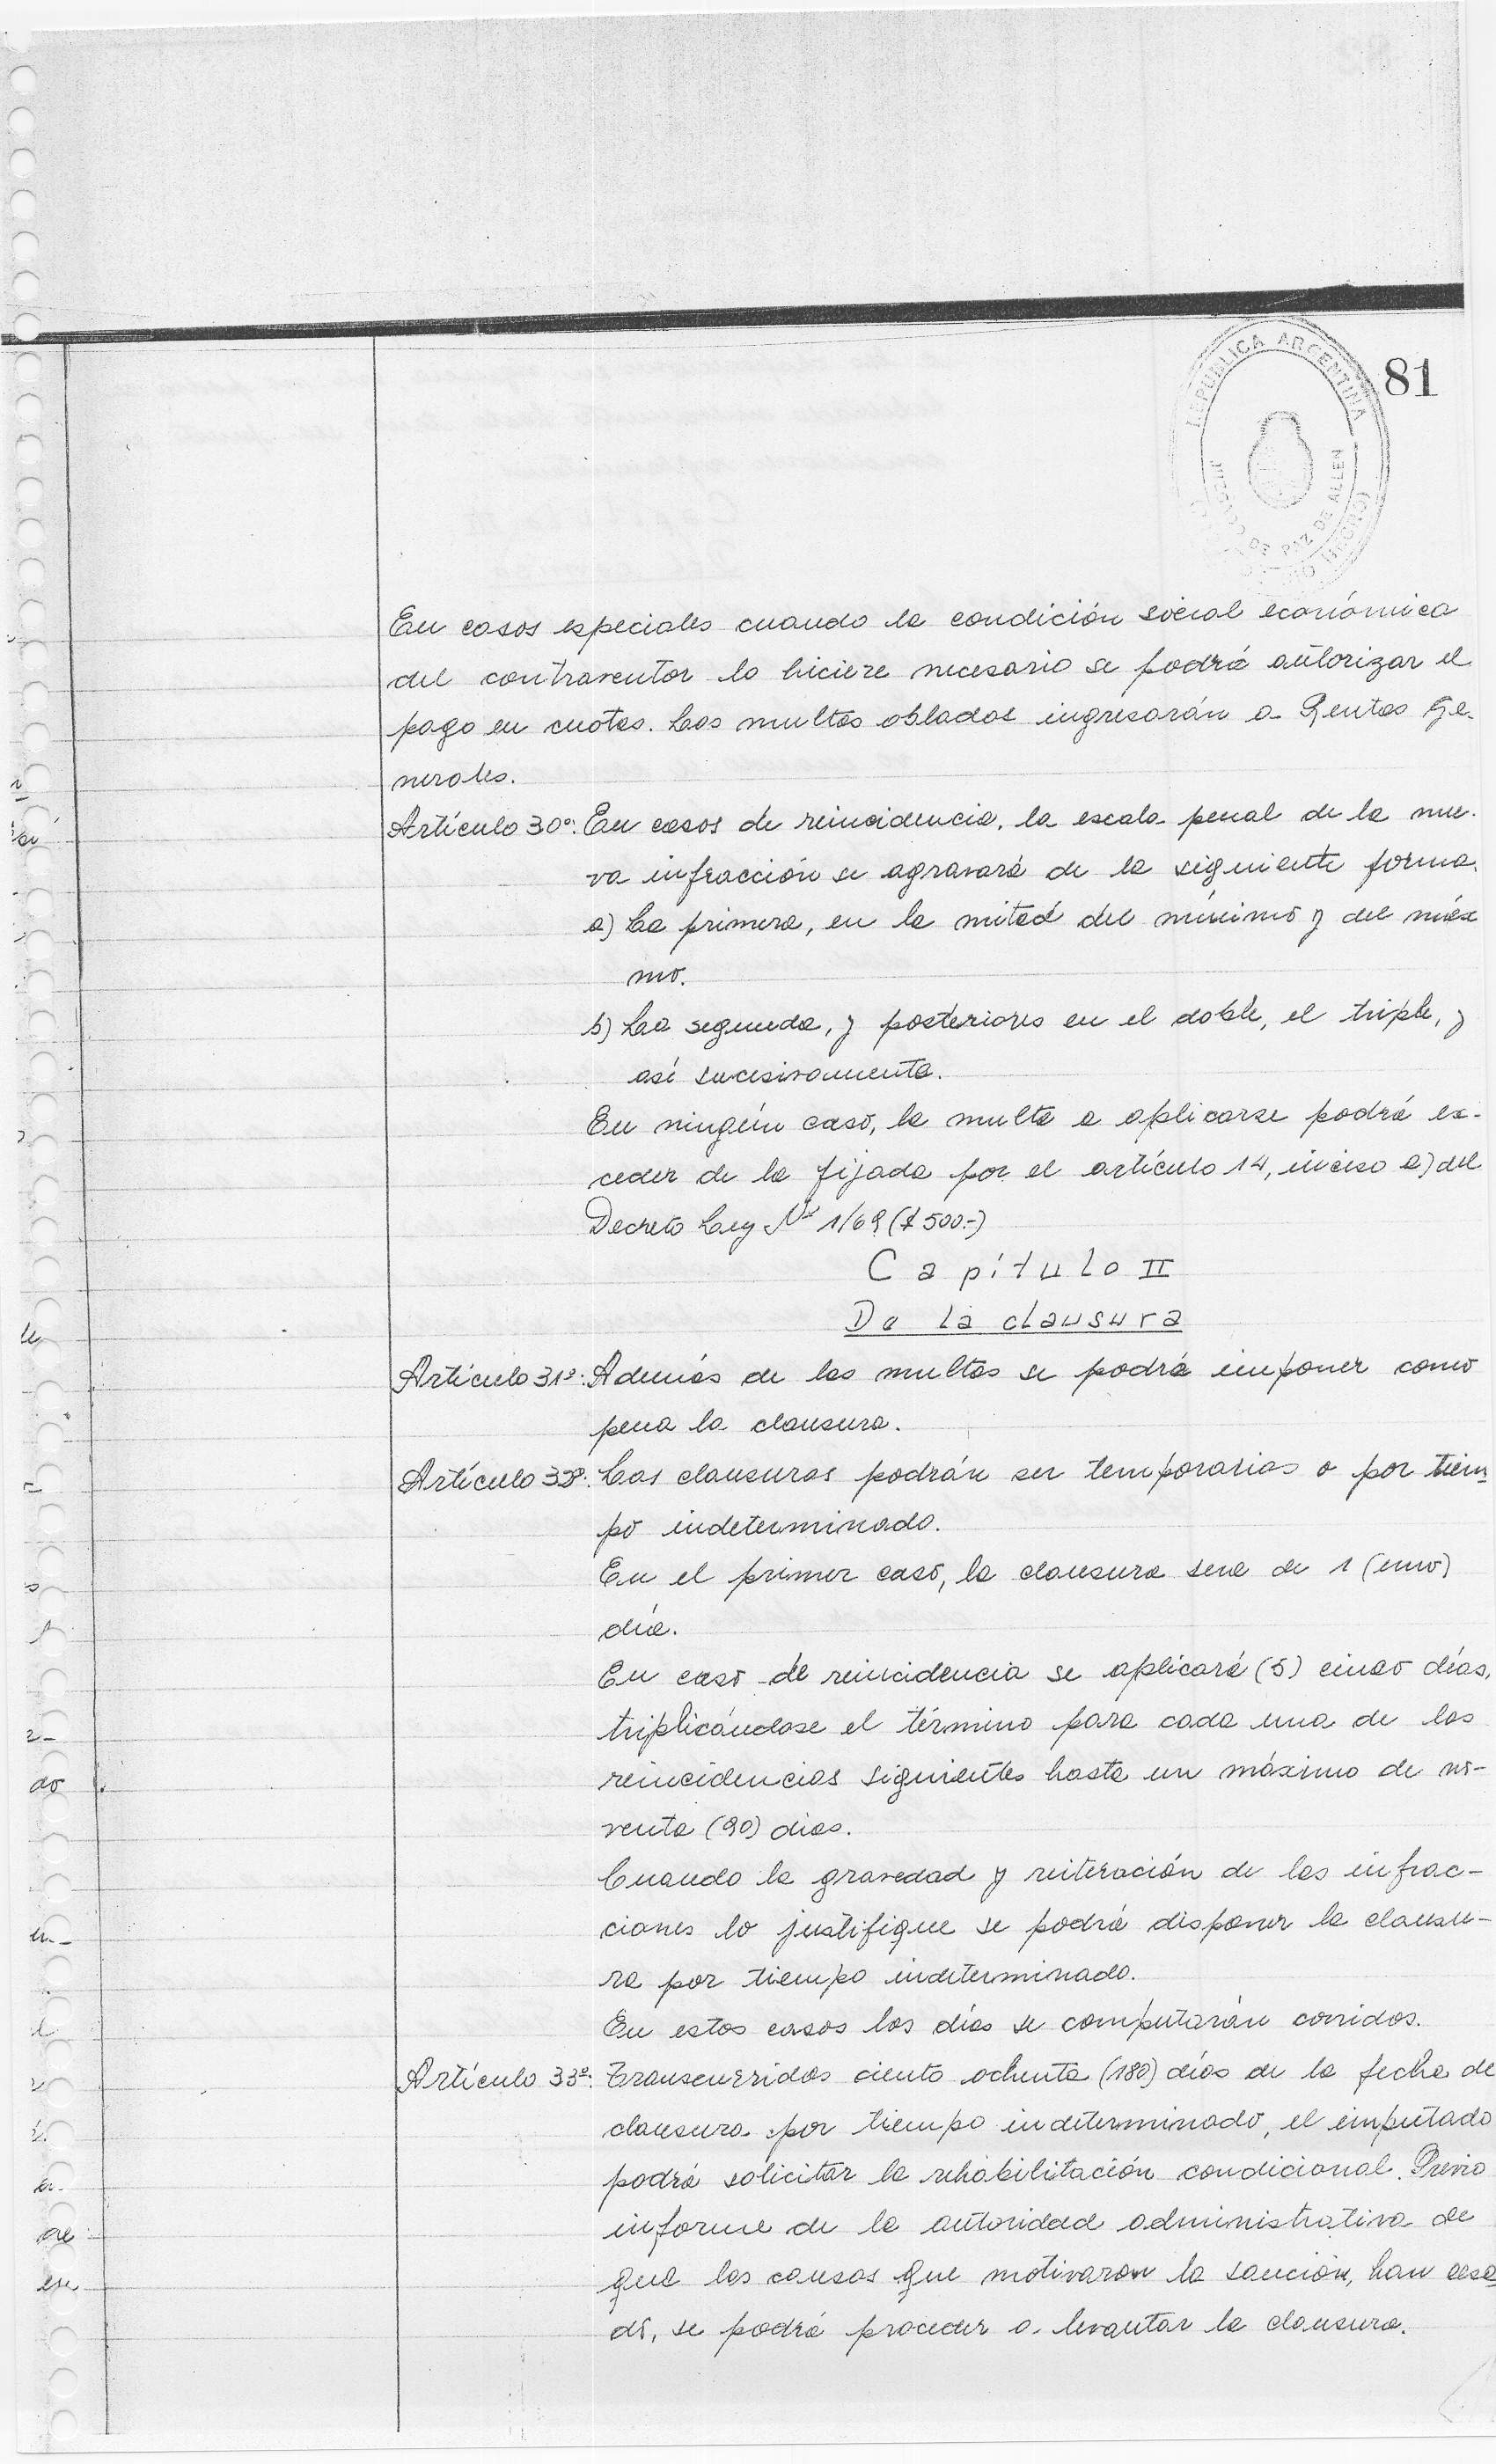 REPUBLICA ARGENTINA
JUZGADO DE PAZ DE ALLEN
81
En casos especiales cuando la condición social económica
del contraventor lo hiciere necesario se podrá autorizar el
pago en cuotas. Las multas obladas ingresarán a Rentas Ge-
nerales.
Artículo 30º: En casos de reincidencia, la escala penal de la nue-
va infracción se agravará de la siguiente forma.
a) La primera, en la mitad del mínimo y del máxi
mo.
b) La segunda, y posteriores en el doble, el triple, y
así sucesivamente.
En ningún caso, la multa a aplicarse podrá ex-
ceder de la fijada por el artículo 14, inciso a) del
Decreto Ley Nº 1/69 ($ 500.-)
Capítulo II
De la clausura
Artículo 31º: Además de las multas se podrá imponer como
pena la clausura.
Artículo 32º: Las clausuras podrán ser temporarias o por tiem
po indeterminado.
En el primer caso, la clausura será de 1 (uno)
día.
En caso de reincidencia se aplicará (5) cinco días,
triplicándose el término para cada una de las
reincidencias siguientes hasta un máximo de no-
venta (90) días.
Cuando la gravedad y reiteración de las infrac-
ciones lo justifique se podrá disponer la clausu-
ra por tiempo indeterminado.
En estos casos los días se computarán corridos.
Artículo 33º: Transcurridos ciento ochenta (180) días de la fecha de
clausura por tiempo indeterminado, el imputado
podrá solicitar la rehabilitación condicional. Previo
informe de la autoridad administrativa de
que las causas que motivaron la sanción, han cesa
do, se podrá proceder a levantar la clausura.